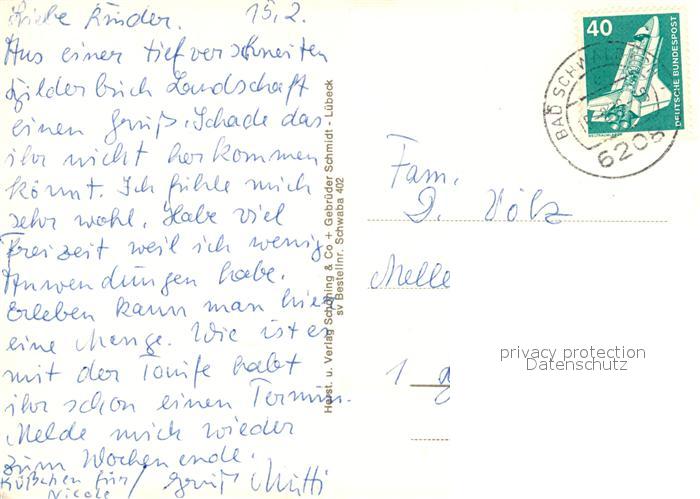 Liebe Kinder. 15.2.
Aus einer tiefverschneiten
Bilderbuch Landschaft
einen Gruß. Schade das
ihr nicht herkommen
könnt. Ich fühle mich
sehr wohl. Habe viel
Freizeit weil ich wenig
Anwendungen habe.
Erleben kann man hier
eine Menge. Wie ist es
mit der Taufe habt
ihr schon einen Termin.
Melde mich wieder
zum Wochenende.
Küßchen für / Gruß Mutti
Nicole
Herst. u. Verlag Schöning & Co + Gebrüder Schmidt - Lübeck
sv Bestellnr. Schwaba 402
40
DEUTSCHE BUNDESPOST
BAD SCHWALB
6208
Fam.
D. Völz
Melle
1
privacy protection
Datenschutz